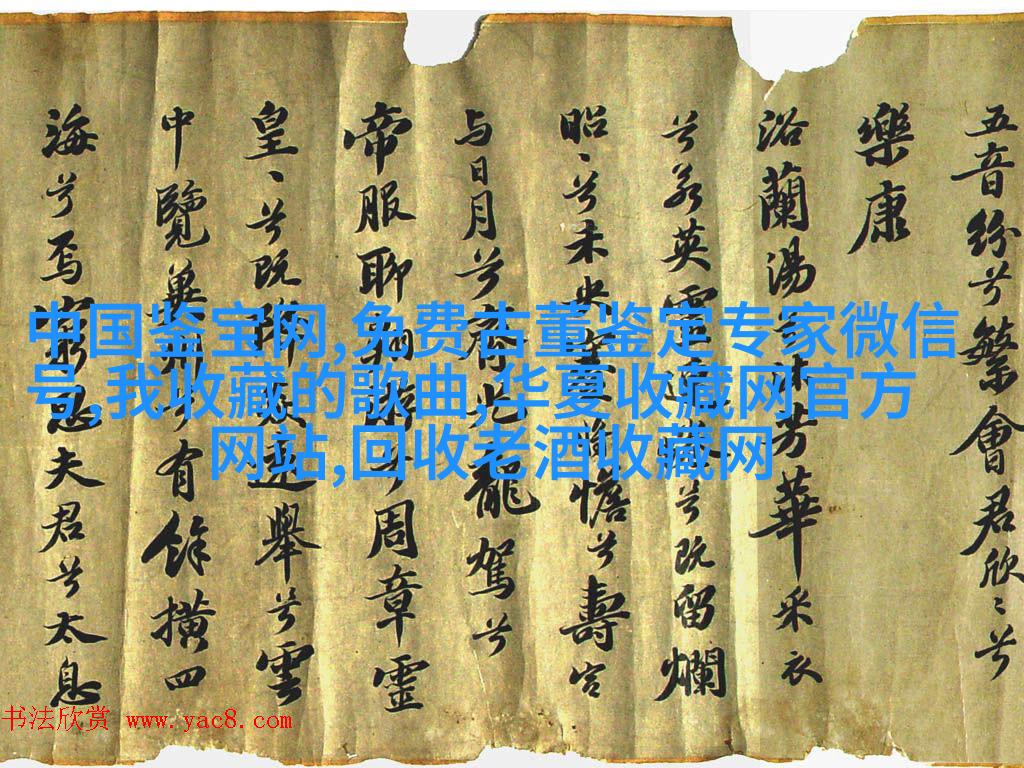 五音紛兮繁會君欣〻兮
樂康
浴蘭湯兮沐芳華采衣
兮若英靈連蜷兮既留爛
昭〻兮未央蹇將憺兮壽宮
与日月兮齊光龍駕兮
帝服聊翱遊兮周章靈
皇〻兮既降猋遠舉兮雲
中覽冀州兮有餘橫四
海兮焉窮思夫君兮太息
中国鉴宝网,免费古董鉴定专家微信
号,我收藏的歌曲,华夏收藏网官方
网站,回收老酒收藏网
书法欣赏 www.yac8.com